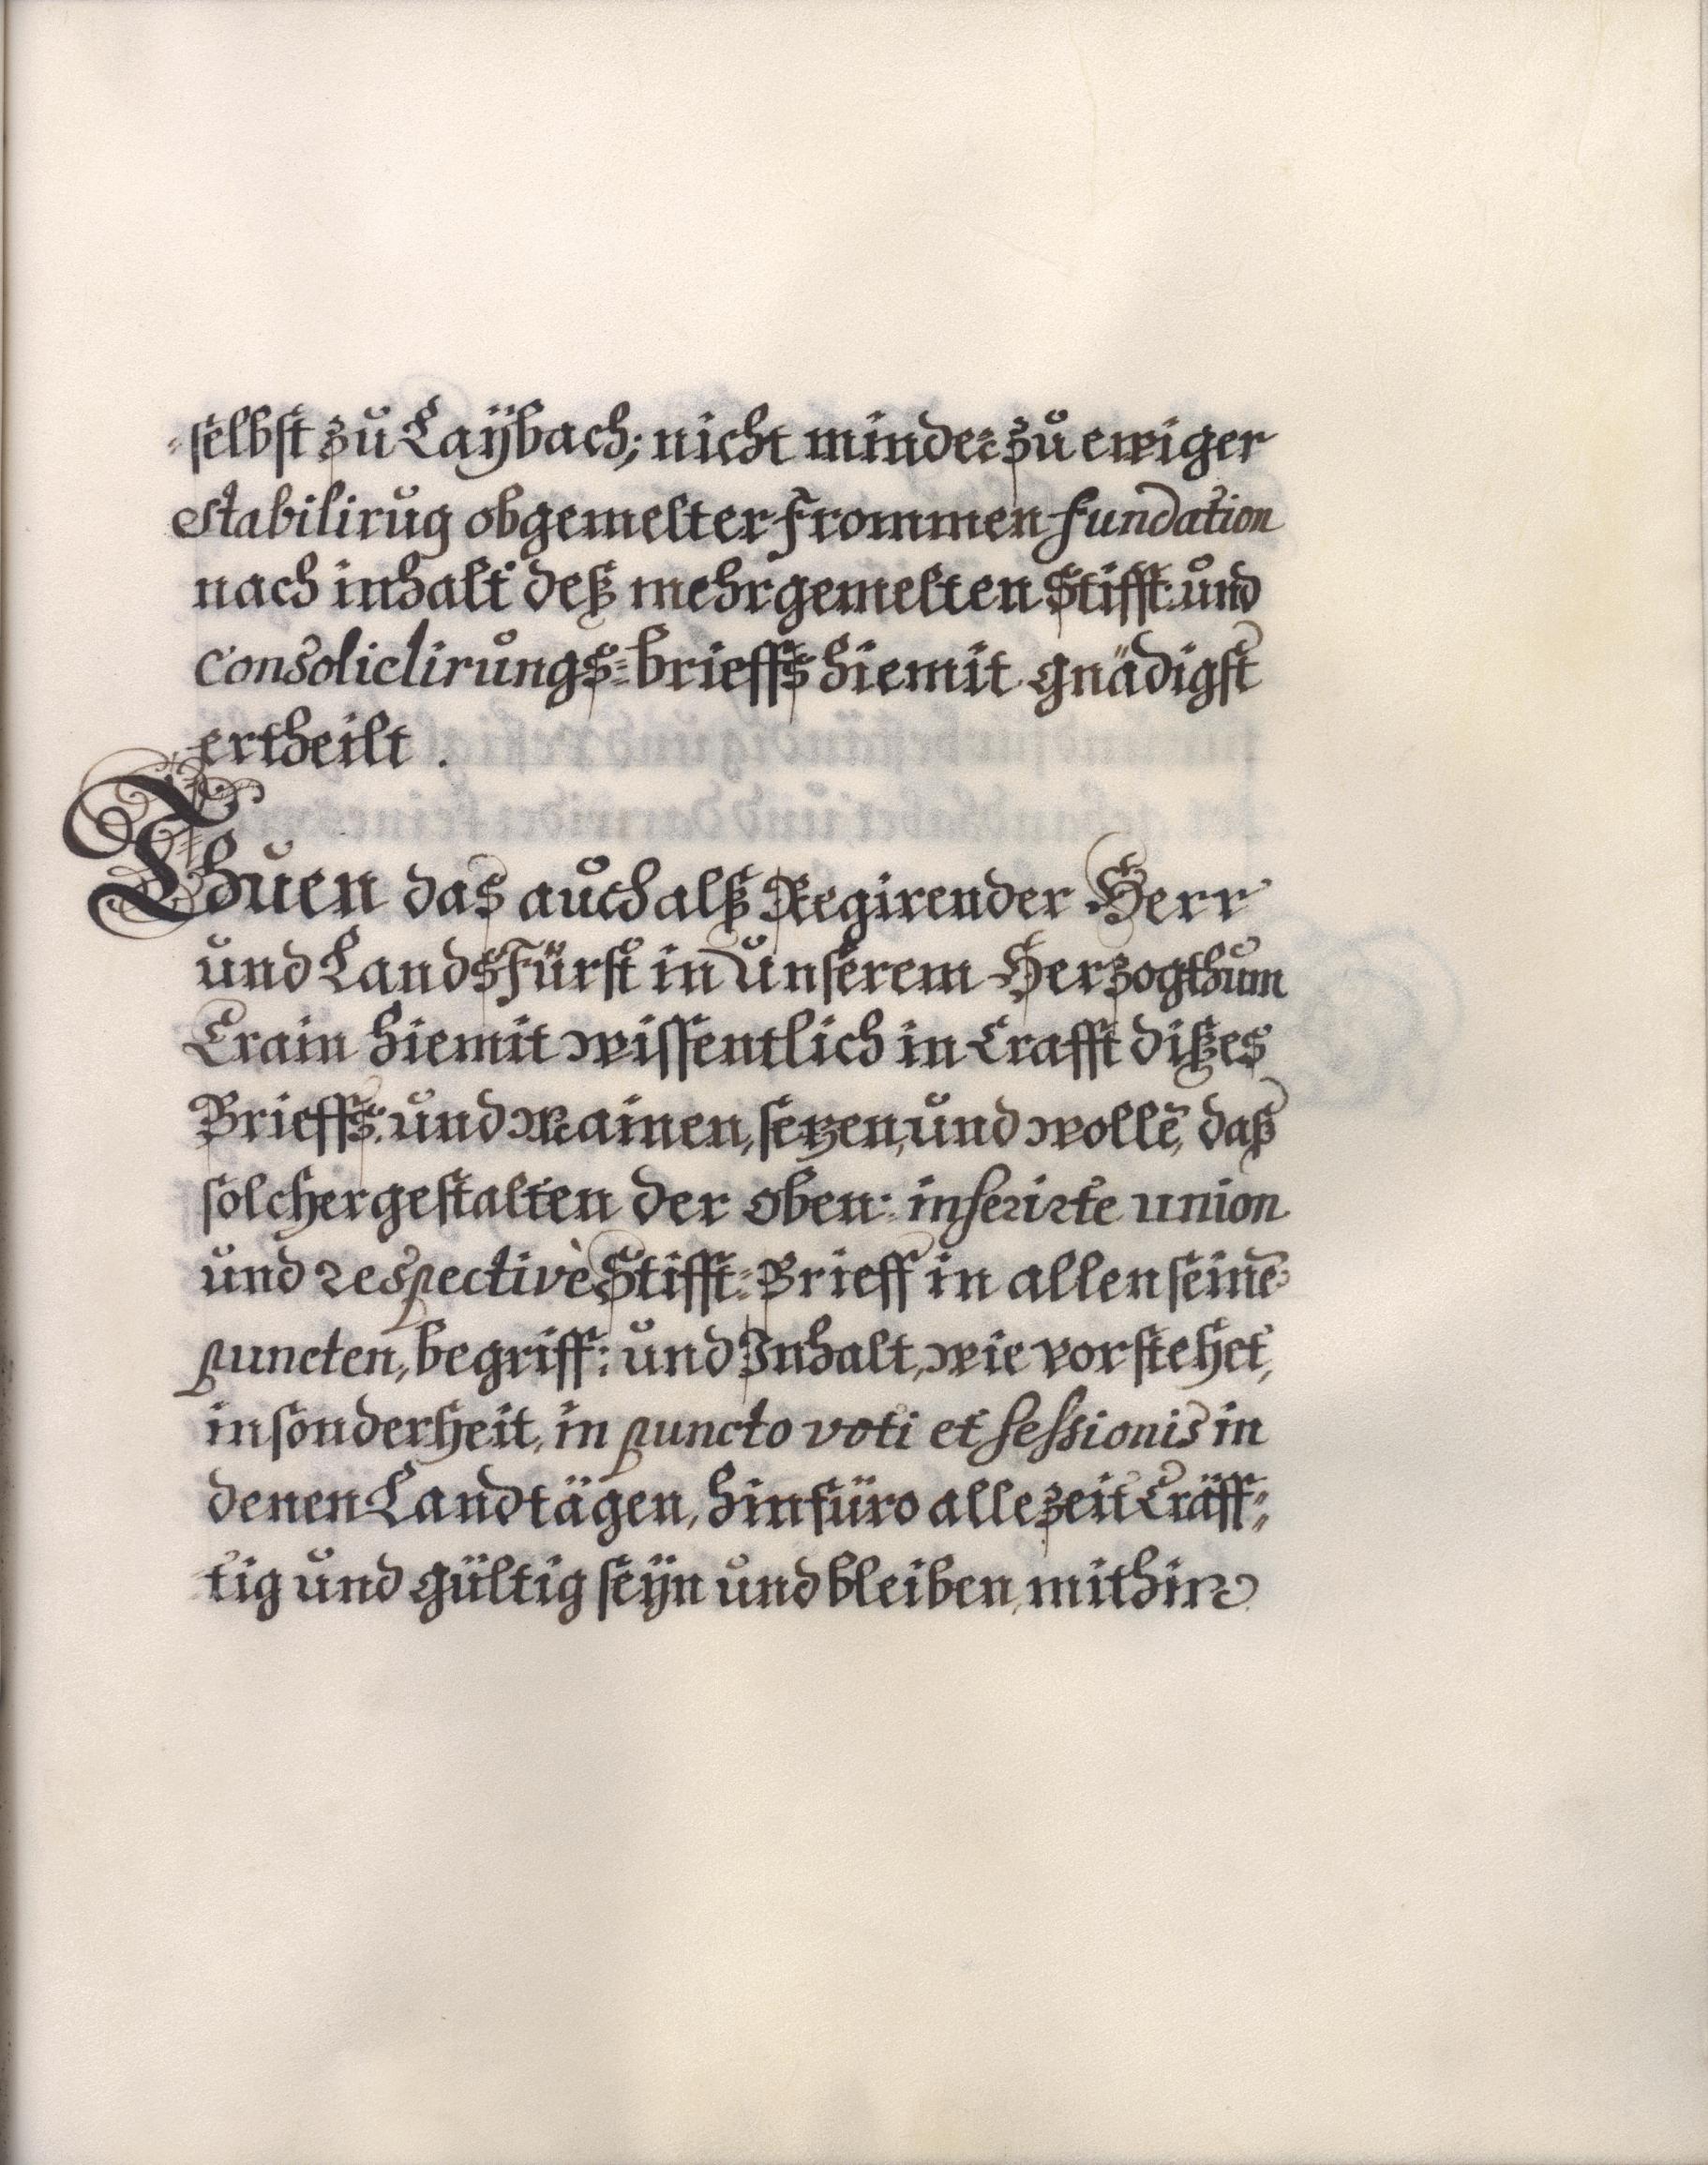 =selbst zu Laÿbach; nicht minder zu ewiger
stabilirug obgemelter frommen fundation
nach inhalt deß mehrgemelten Stifft: und
consolidirungs=brieffs hiemit gnädigst
ertheilt.
Thuen das auch alß Regirender Herr
und LandsFürst in Unserem Herzogthum
Crain hiemit wissentlich in Crafft dißes
Brieffs: und Mainen, sezen, und wollē, daß
solchergestalten der oben: inserirte union
und respectivè Stifft=Brieff in allen seinē
puncten, begriff: und Inhalt, wie vorstehet,
insonderheit, in puncto voti et sessionis in
denen Landtägen, hinfüro allezeit Cräff=
tig und gültig seÿn und bleiben, mithin